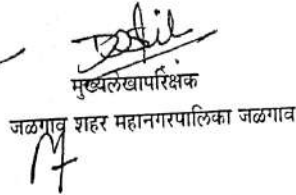 मुख्यलेखापरिक्षक
जळगाव शहर महानगरपालिका जळगाव